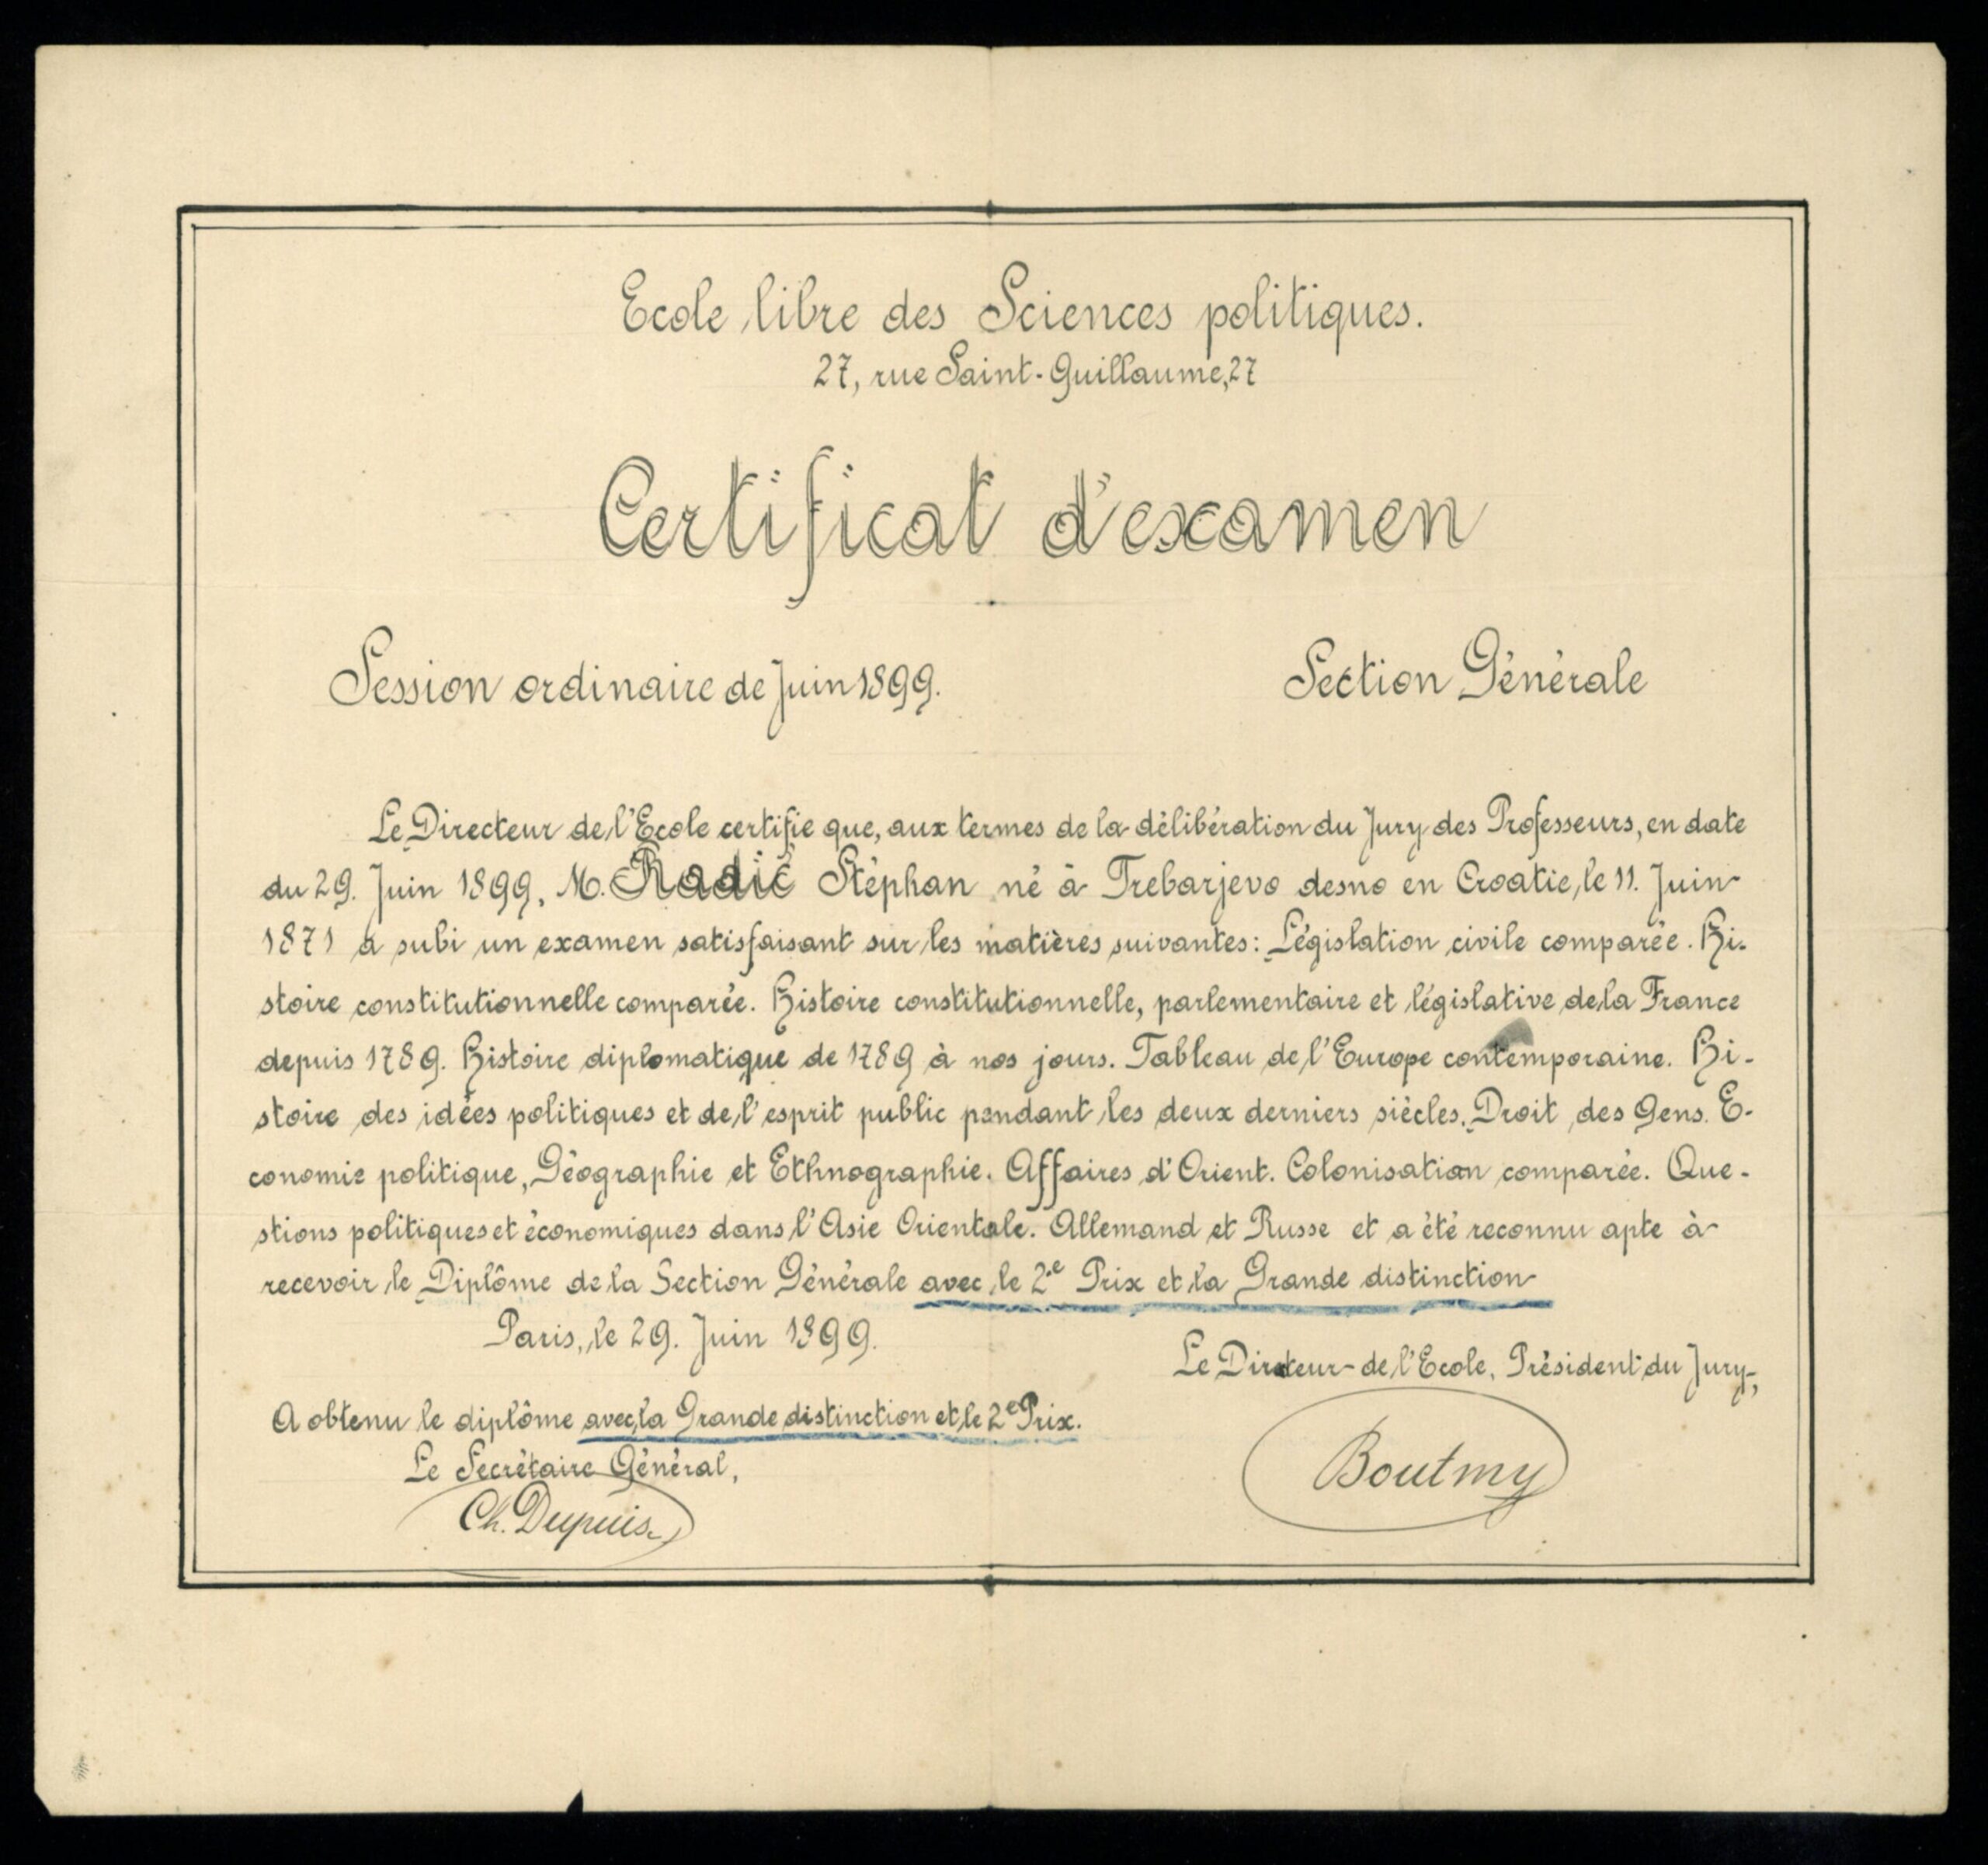 Ecole libre des Sciences politiques.
27, rue Saint-Guillaume, 27
Certificat d'examen
Session ordinaire de Juin 1899.
Section Générale
Le Directeur de l'Ecole certifie que, aux termes de la délibération du Jury des Professeurs, en date
du 29. Juin 1899, M. Radić Stéphan né à Trebarjevo desno en Croatie, le 11. Juin
1871 a subi un examen satisfaisant sur les matières suivantes: Législation civile comparée. Hi-
stoire constitutionnelle comparée. Histoire constitutionnelle, parlementaire et législative de la France
depuis 1789. Histoire diplomatique de 1789 à nos jours. Tableau de l'Europe contemporaine. Hi-
stoire des idées politiques et de l'esprit public pendant les deux derniers siècles. Droit des Gens. E-
conomie politique, Géographie et Ethnographie. Affaires d'Orient. Colonisation comparée. Que-
stions politiques et économiques dans l'Asie Orientale. Allemand et Russe et a été reconnu apte à
recevoir le Diplôme de la Section Générale avec le 2e Prix et la Grande distinction
Paris, le 29. Juin 1899.
Le Directeur de l'Ecole, Président du Jury,
A obtenu le diplôme avec la Grande distinction et le 2e Prix.
Le Secrétaire Général,
Boutmy
Ch. Dupuis